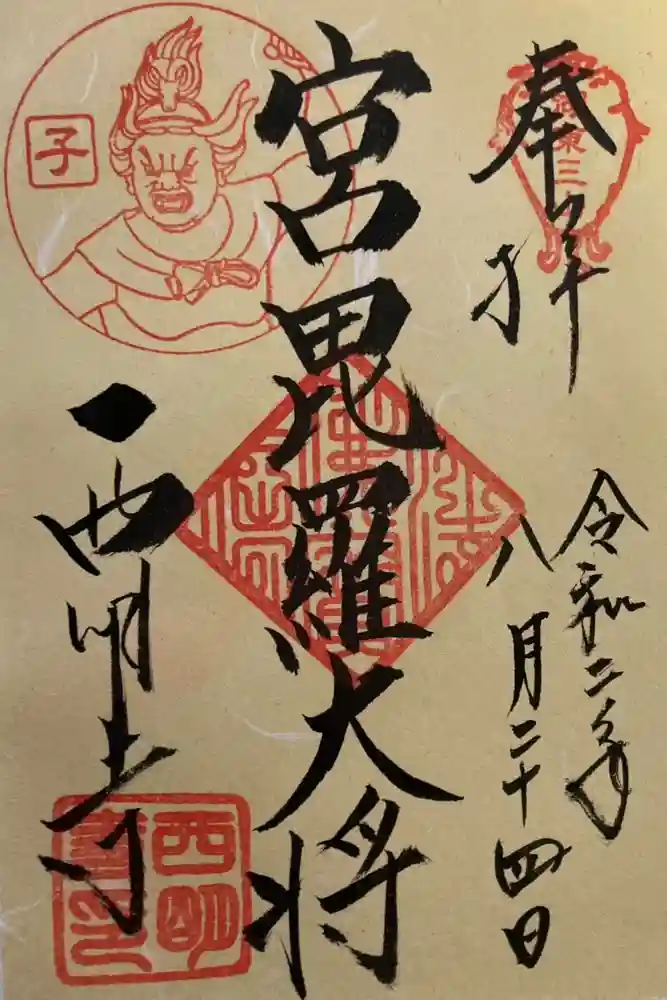 奉拝
令和二年
八月二十四日
宮毘羅大将
子
西明寺
西明